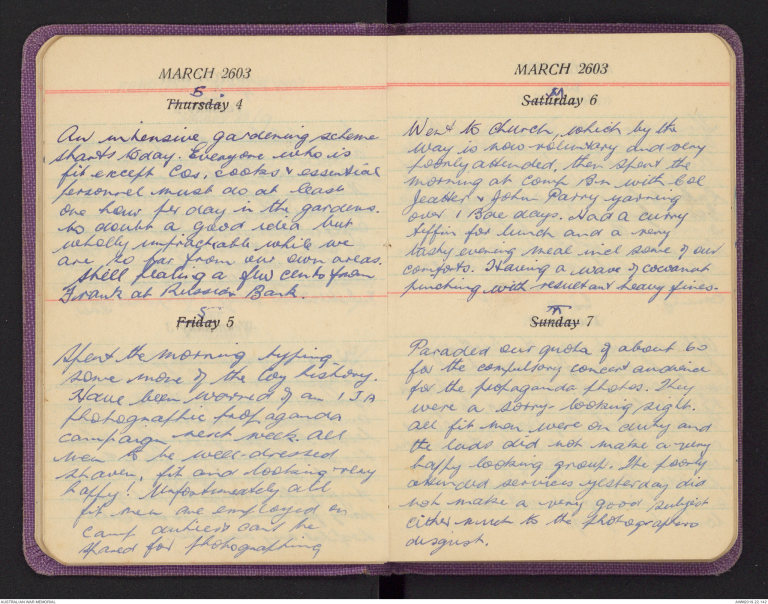 MARCH 2603
S.
Thursday 4
An intensive gardening scheme
starts today. Everyone who is
fit except Cos, cooks & essential
personnel must do at least
one hour per day in the gardens.
No doubt a good idea but
wholly impracticable while we
are so far from our own areas.
Still floating a few cents from
Frank at Russian Bank.
S
Friday 5
Spent the morning typing
some more of the Coy history.
Have been warned of an I J A
photographic propaganda
campaign next week. All
men to be well-dressed
shaven, fit and looking very
happy! Unfortunately all
fit men are employed on
camp duties & can't be
spared for photographing
MARCH 2603
Saturday 6
Went to church, which by the
way is now voluntary and very
poorly attended, then spent the
morning at Comp Bn with Col
& John Parry yarning
over 1 Bde days. Had a curry
tiffin for lunch and a very
tasty evening meal incl some of our
comforts. Having a wave of cocoanut
pinching with resultant heavy fines.
Sunday 7
Paraded our quota of about 60
for the compulsory concert audience
for the propaganda photos. They
were a sorry-looking sight.
All fit men were on duty and
the lads did not make a very
happy looking group. The poorly
attended services yesterday did
not make a very good subject
either much to the photographers
disgust.
AUSTRALIAN WAR MEMORIAL